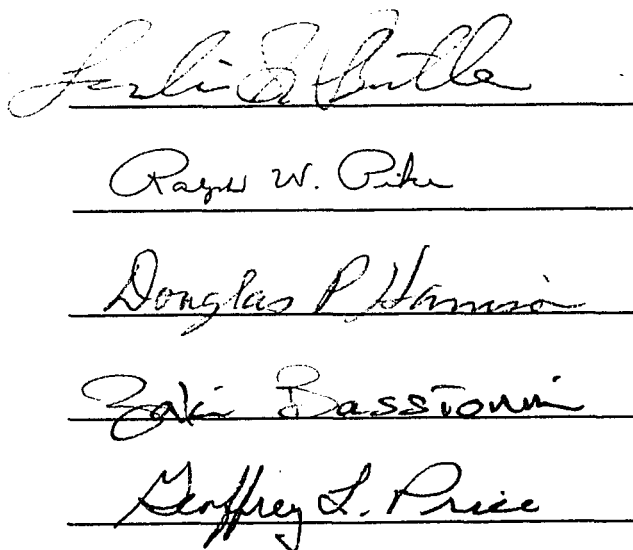 Leslie G. Butler
Ralph W. Pike
Douglas P. Harrison
Zaki Bassiouni
Geoffrey L. Price